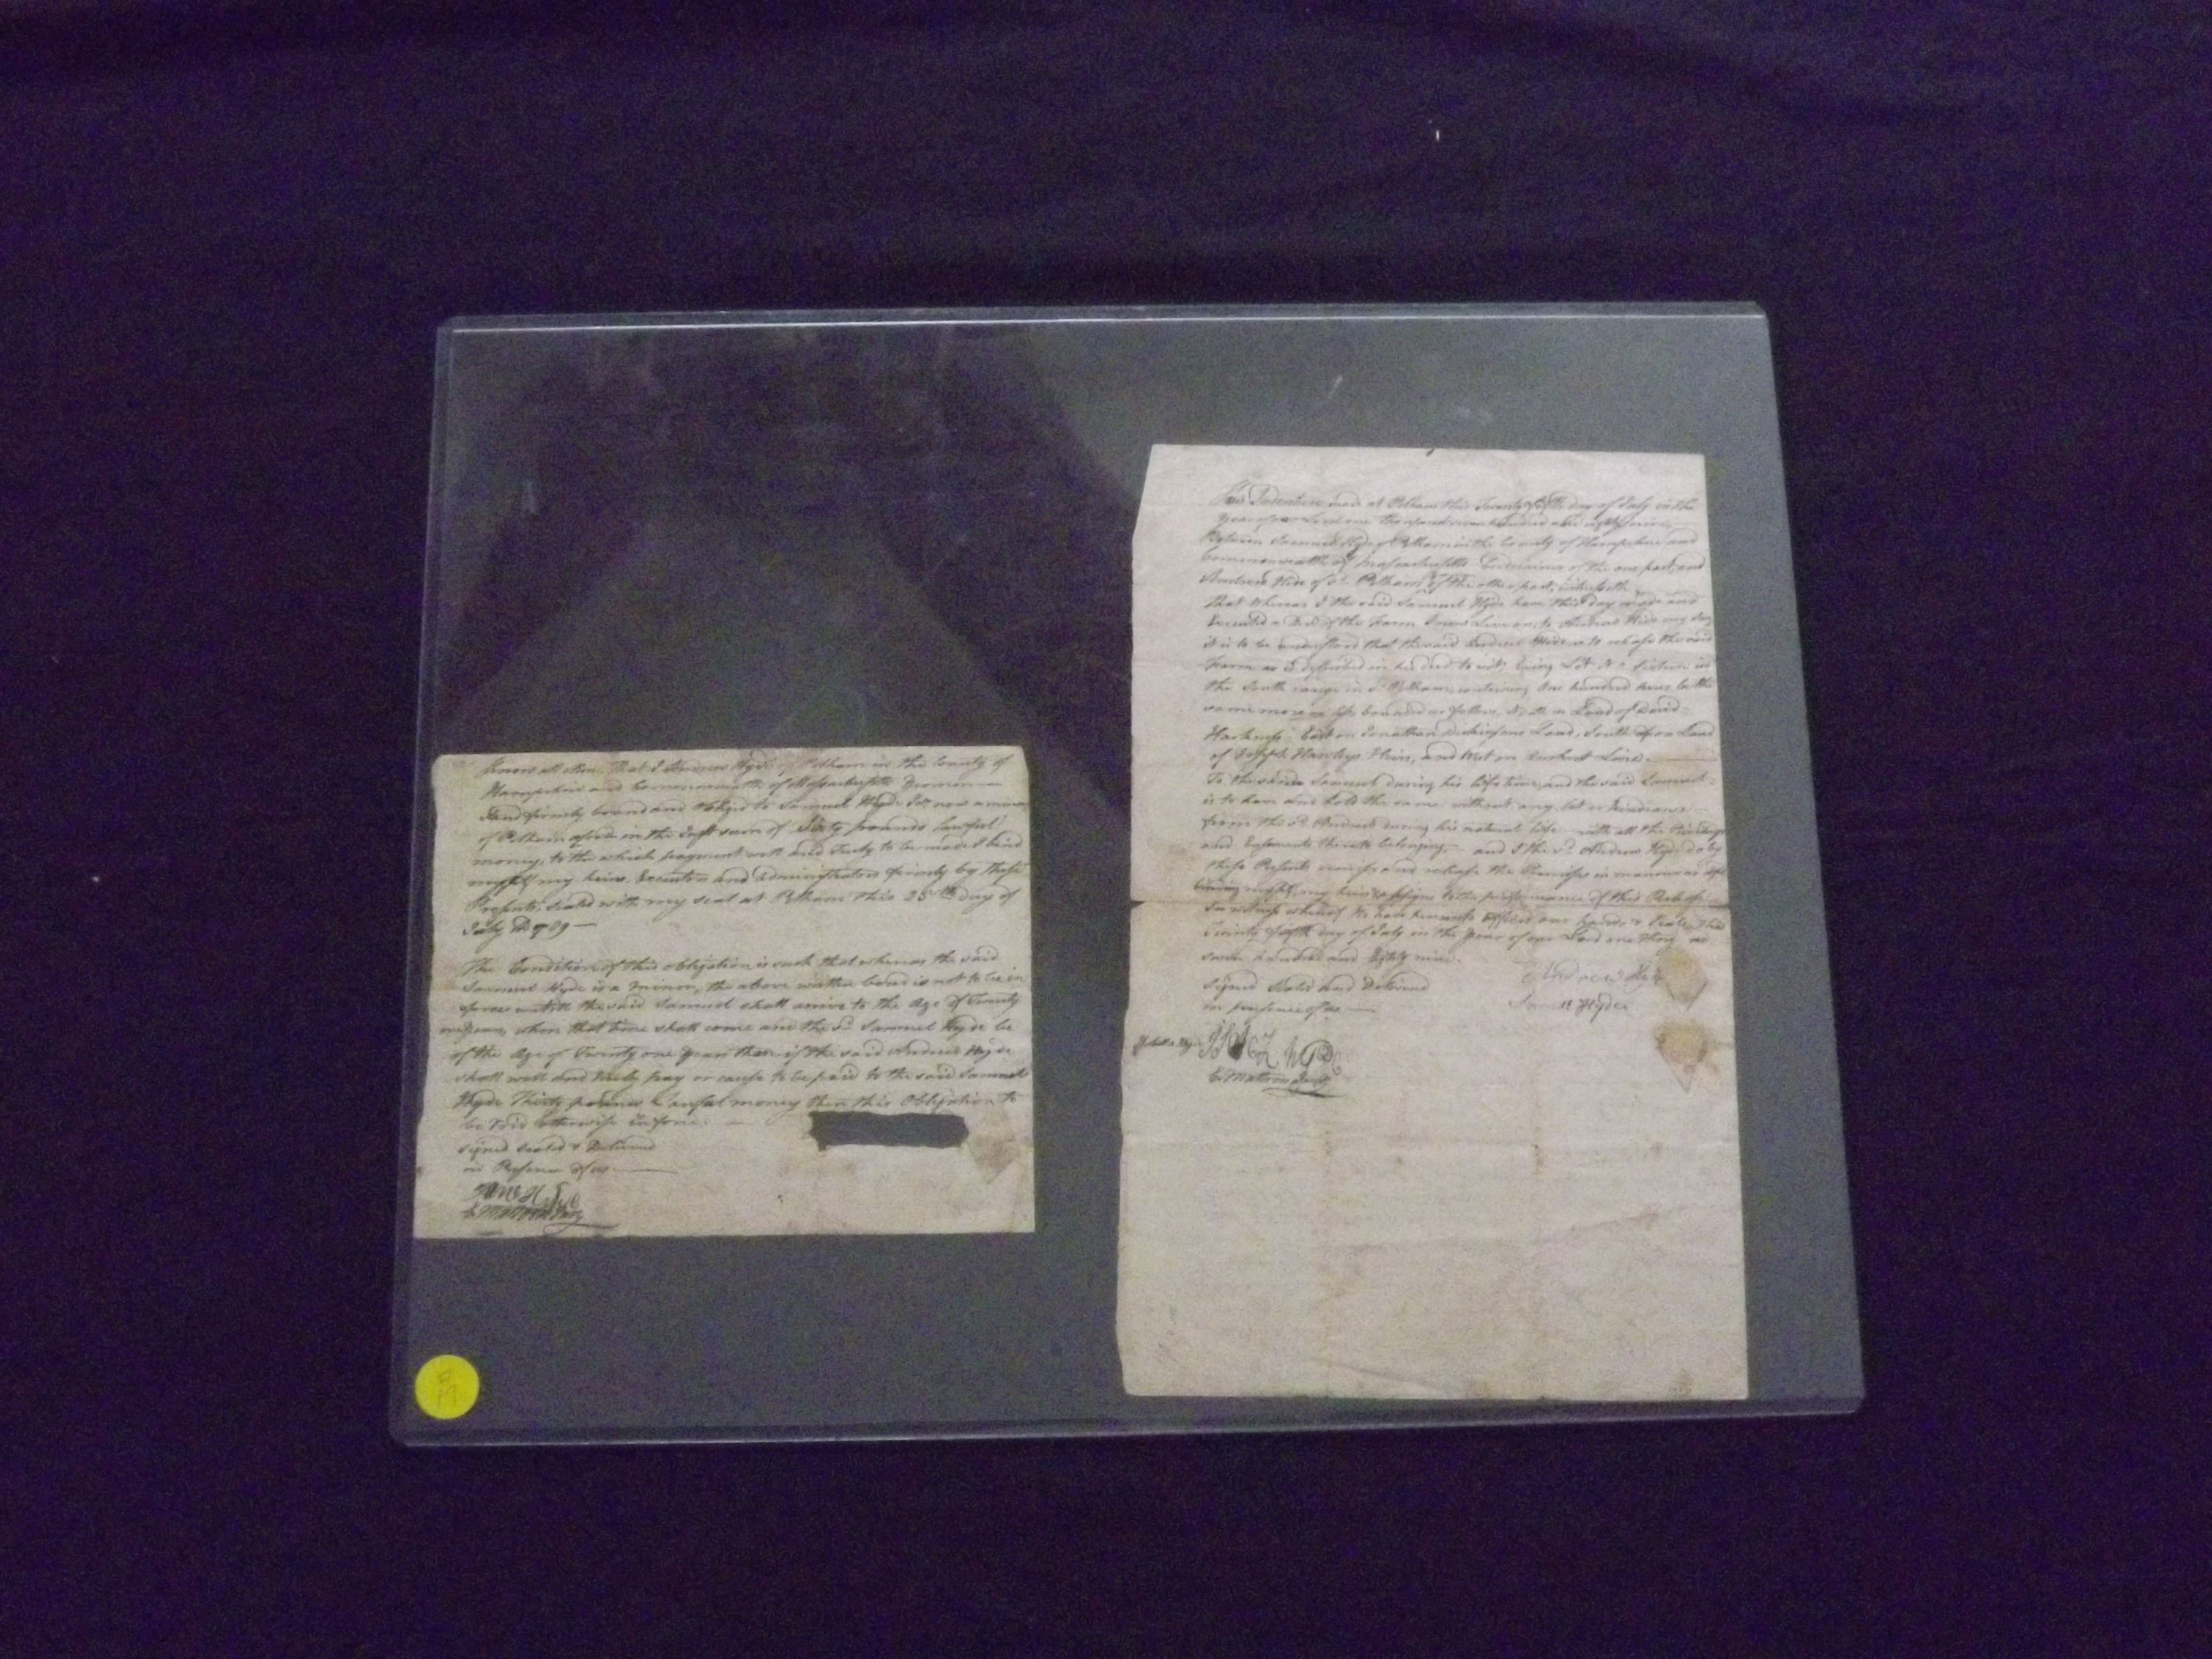 Know all Men That I Andrew Hyde of Pelham in the County of
Hampshire and Commonwealth of Massachusetts Yeoman
and firmly bound and obliged to Samuel Hyde Jnr now a minor
of Pelham aforesd in the Just sum of Sixty pounds lawful
money, to the which payment well and Truly to be made I bind
myself my heirs, Executors and Administrators firmly by these
Presents, sealed with my seal at Pelham this 25th day of
July AD 1789
The Condition of this obligation is such that whereas the said
Samuel Hyde is a minor, the above written bond is not to be in
force untill the said Samuel shall arrive to the Age of Twenty
one years, when that time shall come and the sd Samuel Hyde be
of the Age of Twenty one years then if the said Andrew Hyde
shall well and truly pay or cause to be paid to the said Samuel
Hyde Thirty pounds Lawful money then this Obligation to
be Void otherwise in force.
signed sealed & Delivered
in Presence of us
E Mattoon Junr
This Indenture made at Pelham this Twenty fifth day of July in the
Year of our Lord one thousand seven hundred and eighty nine,
Between Samuel Hyde of Pelham in the County of Hampshire and
Commonwealth of Massachusetts of the one part, and
Andrew Hide of sd Pelham of the other part, witnesseth
That Whereas I the said Samuel Hyde have this day made and
Executed a Deed of the Farm I now Live on, to Andrew Hide my son
it is to be understood that the said Andrew Hide is to release the said
Farm as is described in his deed to wit, being Lot No Sixteen in
the South range in sd Pelham, containing One hundred Acres be the
same more or less bounded as follows, North on Land of David
Harkness, East on Jonathan Dickinsons Land, South upon Land
of Joseph Hawleys Heirs, and West on Amherst Line.
To the said Samuel during his Life time, and the said Samuel
is to have and hold the same without any let or hindrance
from the sd Andrew during his natural life with all the Priviledges
and Easments thereto belonging, and I the sd Andrew Hyde do by
these Presents and release the Premises in manner as
binding myself, my heirs & assigns to the performance of this Release
In witness whereof We have hereunto affixed our hands & seals this
Twenty fifth day of July in the year of our Lord one thousand
seven hundred and Eighty nine.
Signed Sealed and Delivered
in presence of us
Andrew Hyde
Saml Hyde
E Mattoon Junr